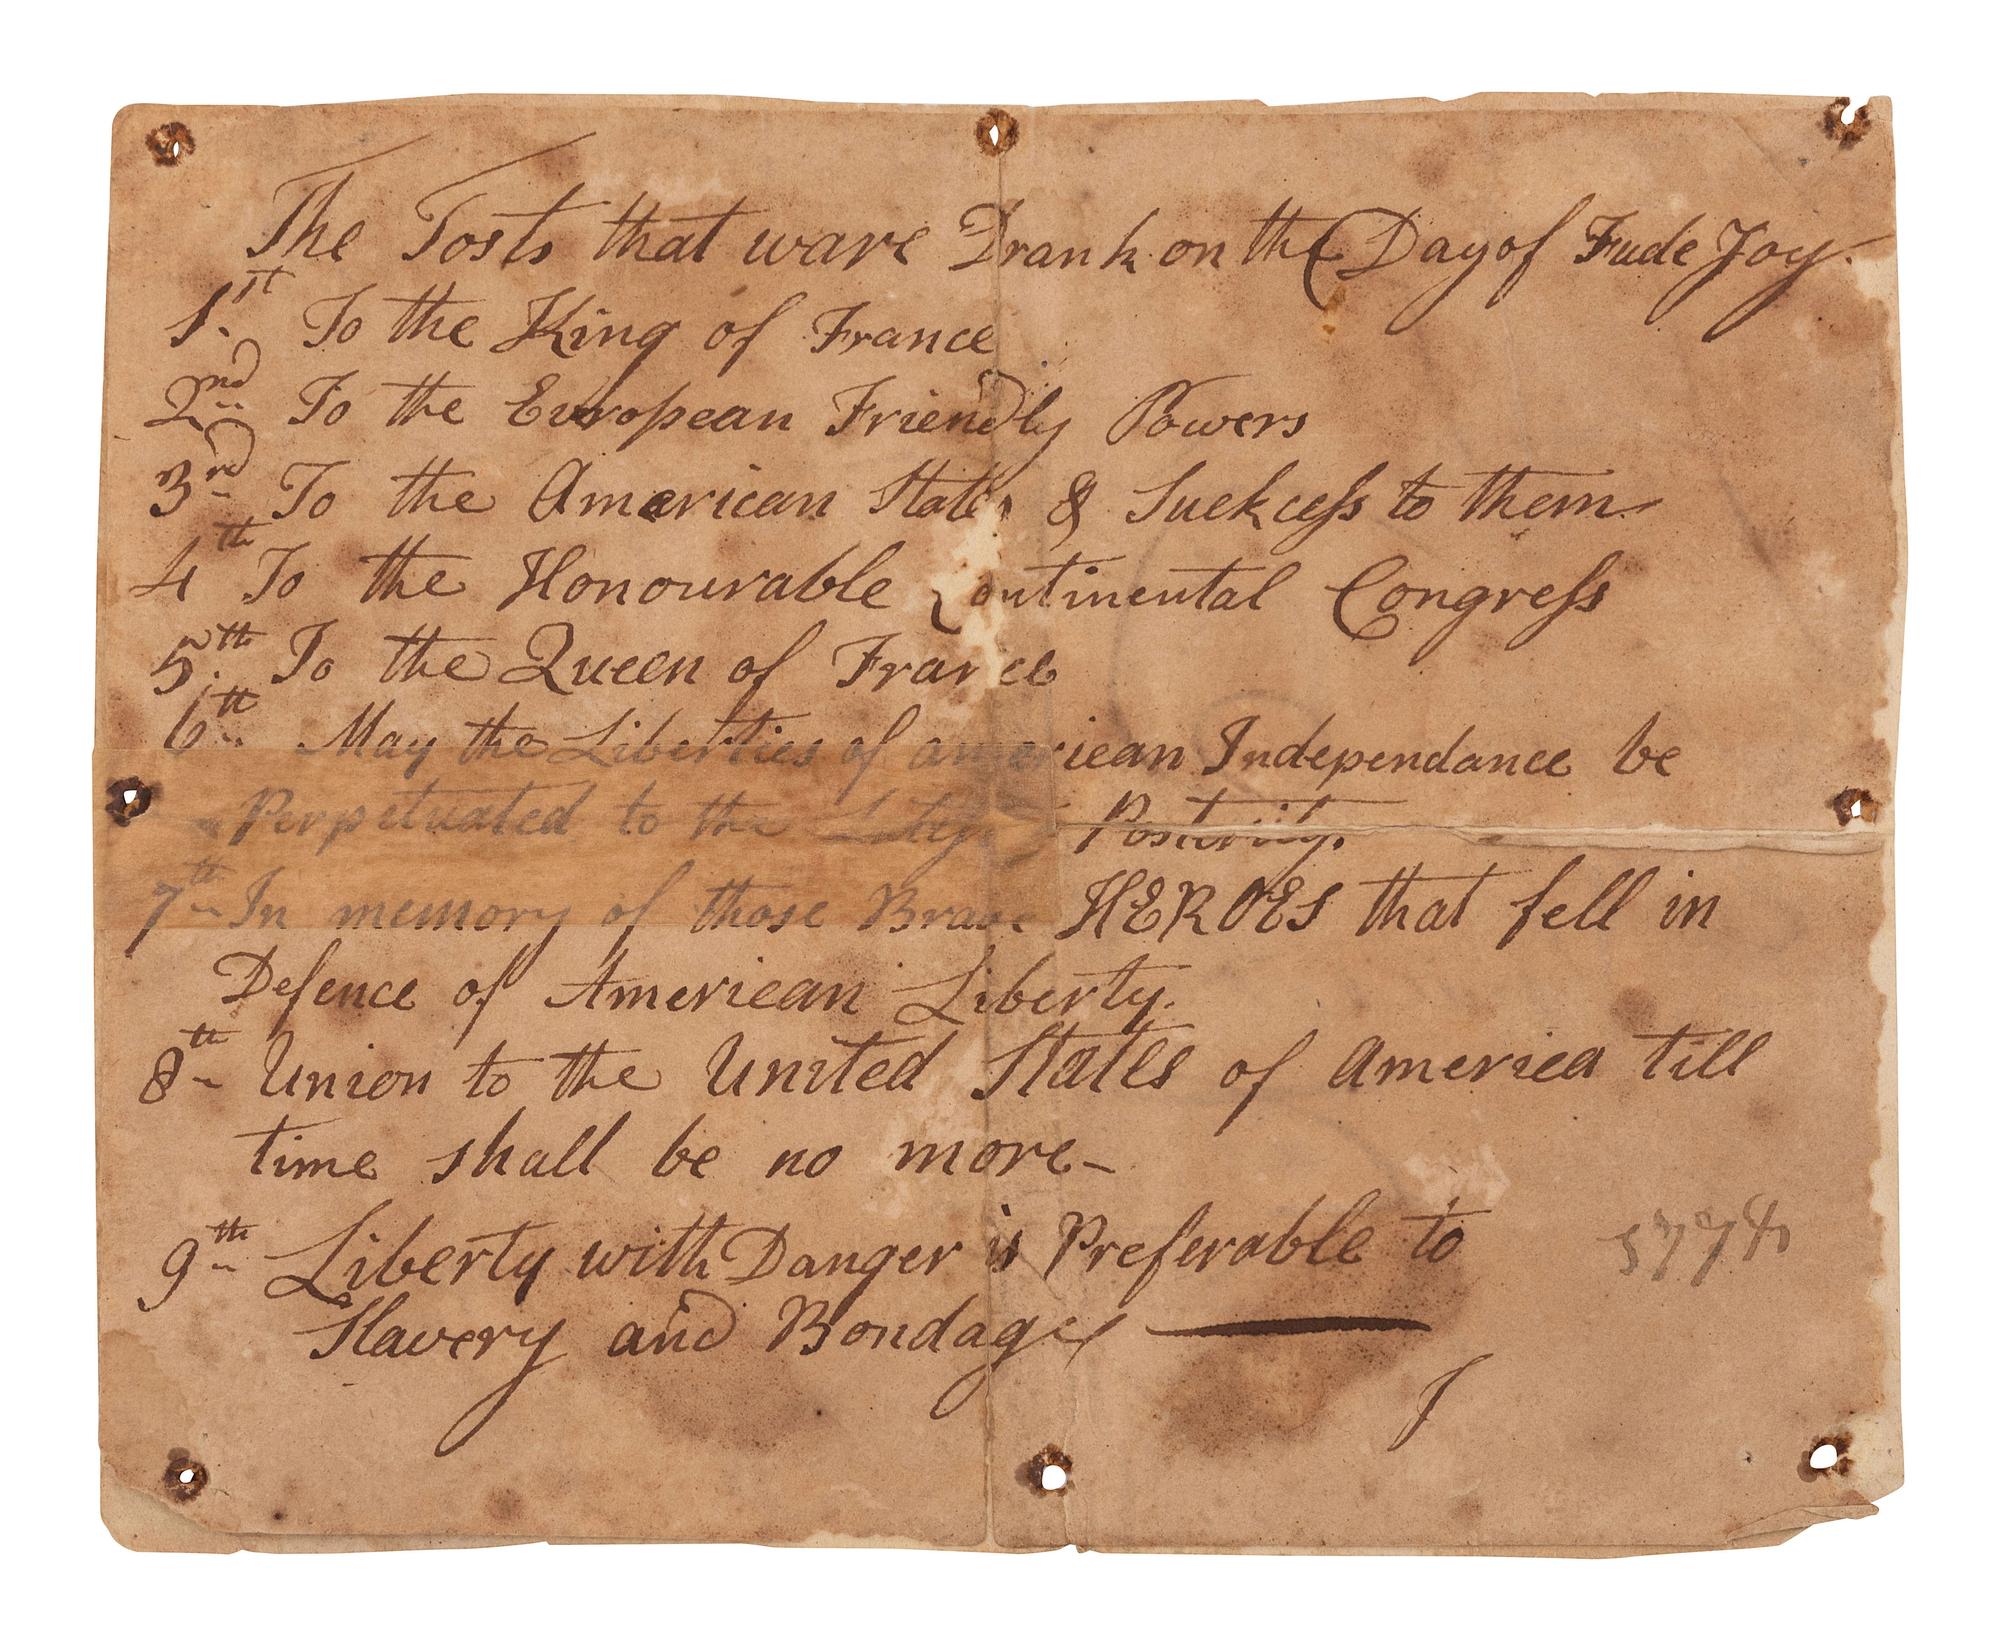 The Tosts that ware Drank on the Day of Fude Joy.
1.st To the King of France
2nd To the European Friendly Powers
3rd To the American States & Suckcess to them
4th To the Honourable Continental Congress
5th To the Queen of France
6th May the Liberties of american Independance be
Perpetuated to the Posterity.
7th In memory of those Brave HEROES that fell in
Defence of American Liberty.
8th Union to the United States of America till
time shall be no more-
9th Liberty with Danger is Preferable to
Slavery and Bondage